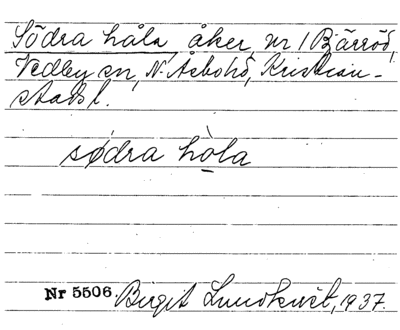 Södra håla, åker, nr 1 Bärröd,
Vedby sn, N. Åsbohd, Kristian-
stads l.
södra hòla
Nr 5506. Birgit Lundkvist, 1937.